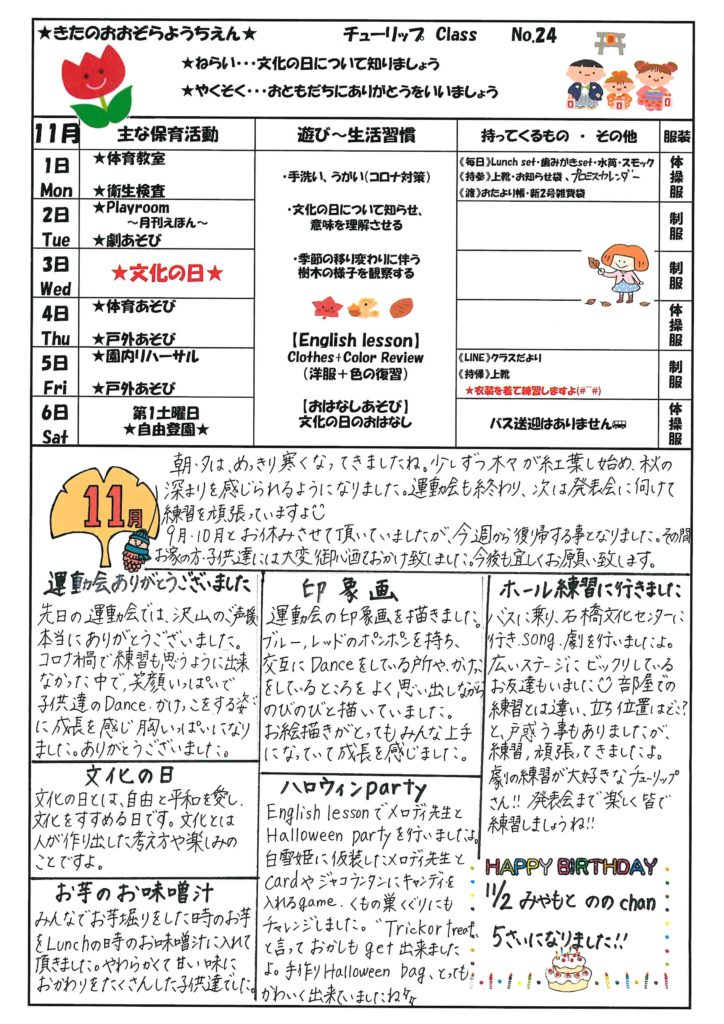 ★きたのおおぞらようちえん★ チューリップ Class No.24
★ねらい・・・文化の日について知りましょう
★やくそく・・・おともだちにありがとうをいいましょう
11月 主な保育活動 遊び～生活習慣 持ってくるもの・その他 服装
1日 Mon
★体育教室
★衛生検査
・手洗い、うがい(コロナ対策)
《毎日》Lunch set・歯みがきset・水筒・スモック
《持参》上靴・お知らせ袋、プロミスカレンダー
《渡》おたより帳・新2号雑貨袋
体操服
2日 Tue
★Playroom
～月刊えほん～
★劇あそび
・文化の日について知らせ、
意味を理解させる
制服
3日 Wed
★文化の日★
・季節の移り変わりに伴う
樹木の様子を観察する
制服
4日 Thu
★体育あそび
★戸外あそび
【English lesson】
Clothes+Color Review
(洋服+色の復習)
体操服
5日 Fri
★園内リハーサル
★戸外あそび
《LINE》クラスだより
《持帰》上靴
★衣装を着て練習しますよ(#^^#)
制服
6日 Sat
第1土曜日
★自由登園★
【おはなしあそび】
文化の日のおはなし
バス送迎はありません
体操服
11月
朝・夕は、めっきり寒くなってきましたね。少しずつ木々が紅葉し始め、秋の
深まりを感じられるようになりました。運動会も終わり、次は発表会に向けて
練習を頑張っていますよ
9月・10月とお休みさせて頂いていましたが、今週から復帰する事となりました。その間
お家の方・子供達には大変御心配おかけ致しました。今後も宜しくお願い致します。
運動会ありがとうございました
先日の運動会では、沢山のご声援
本当にありがとうございました。
コロナ禍で練習も思うように出来
なかった中で、笑顔いっぱいで
子供達のDance・かけっこをする姿
に成長を感じ胸いっぱいになり
ました。ありがとうございました。
文化の日
文化の日とは、自由と平和を愛し、
文化をすすめる日です。文化とは
人が作り出した考え方や楽しみの
ことですよ。
お芋のお味噌汁
みんなでお芋堀りをした時のお芋
をLunchの時のお味噌汁に入れて
頂きました。やわらかくて甘い味に
おかわりをたくさんした子供達でした。
印象画
運動会の印象画を描きました。
ブルー,レッドのポンポンを持ち、
交互にDanceをしている所や、かけっこ
をしているところをよく思い出しながら
のびのびと描いていました。
お絵描きがとってもみんな上手
になっていて成長を感じました。
ハロウィンparty
English lessonでメロディ先生と
Halloween partyを行いましたよ。
白雪姫に仮装したメロディ先生と
cardやジャコランタンにキャンディを
入れるgame. くもの巣くぐりにも
チャレンジしました。"Trick or treat"
と言っておかしもget出来ました
よ。手作りHalloween bag、とっても
かわいく出来ていましたね
ホール練習に行きました
バスに乗り、石橋文化センターに
行き、song. 劇を行いましたよ。
広いステージにビックリしている
お友達もいました 部屋での
練習とは違い、立ち位置はどこ?
と、戸惑う事もありましたが、
練習,頑張ってきましたよ。
劇の練習が大好きなチューリップ
さん!! 発表会まで楽しく皆で
練習しましょうね!!
HAPPY BIRTHDAY
11/2 みやもと ののchan
5さいになりました!!